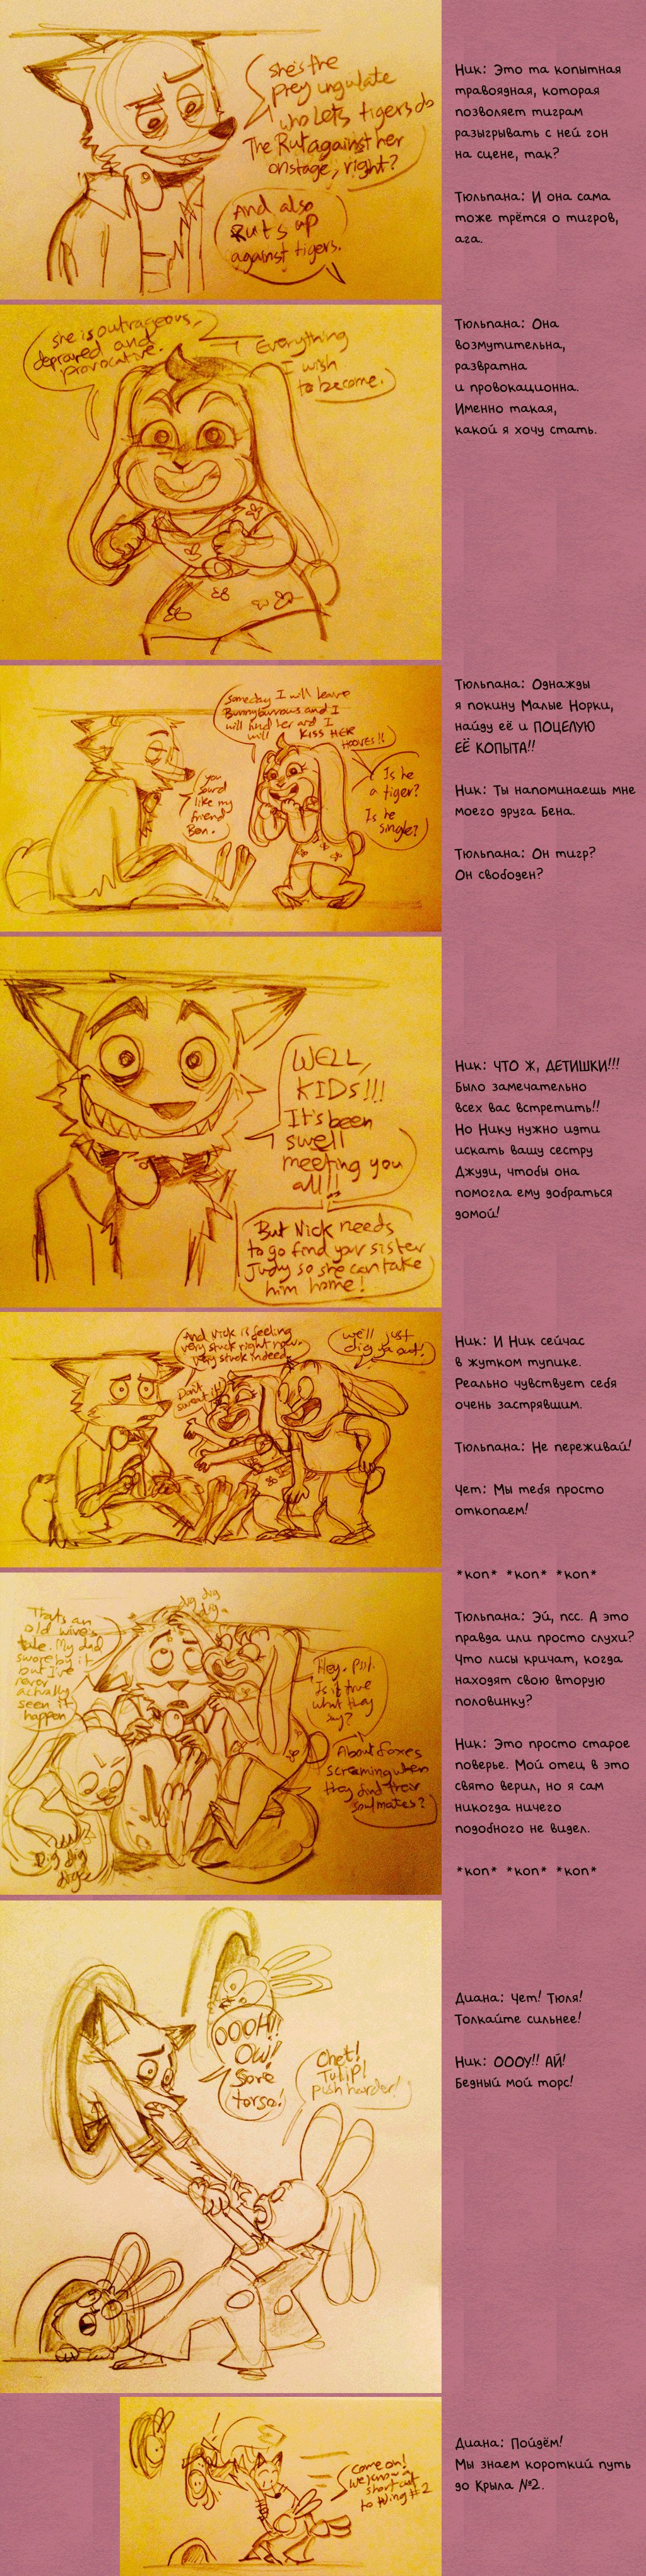 she's the
prey ungulate
who lets tigers do
The Rut against her
onstage, right?
And also
Ruts up
against tigers.
Ник: Это та копытная
травоядная, которая
позволяет тиграм
разыгрывать с ней гон
на сцене, так?
Тюльпана: И она сама
тоже трётся о тигров,
ага.
she is outrageous,
depraved and
provocative.
Everything
I wish
to become.
Тюльпана: Она
возмутительна,
развратна
и провокационна.
Именно такая,
какой я хочу стать.
Someday I will leave
Bunnyburrows and I
will find her and I
will KISS HER
HOOVES!!
you
sound
like my
friend
Ben.
Is he
a tiger?
Is he
single?
Тюльпана: Однажды
я покину Малые Норки,
найду её и ПОЦЕЛУЮ
ЕЁ КОПЫТА!!
Ник: Ты напоминаешь мне
моего друга Бена.
Тюльпана: Он тигр?
Он свободен?
WELL,
KIDS!!!
It's been
swell
meeting you
all!!
But Nick needs
to go find your sister
Judy so she can take
him home!
Ник: ЧТО Ж, ДЕТИШКИ!!!
Было замечательно
всех вас встретить!!
Но Нику нужно идти
искать вашу сестру
Джуди, чтобы она
помогла ему добраться
домой!
And Nick is feeling
very stuck right now.
Very stuck indeed.
Don't
sweat it!
we'll just
dig ya out!
Ник: И Ник сейчас
в жутком тупике.
Реально чувствует себя
очень застрявшим.
Тюльпана: Не переживай!
Чет: Мы тебя просто
откопаем!
dig dig
dig
Thats an
old wive's
tale. My dad
swore by it
but I've
never
actually
seen it
happen
Hey. Psst.
Is it true
what they
say?
About foxes
screaming when
they find their
soulmates?
Dig dig
dig
*коп* *коп* *коп*
Тюльпана: Эй, псс. А это
правда или просто слухи?
Что лисы кричат, когда
находят свою вторую
половинку?
Ник: Это просто старое
поверье. Мой отец в это
свято верил, но я сам
никогда ничего
подобного не видел.
*коп* *коп* *коп*
OOOH!!
Ow!
Sore
torso!
Chet!
Tulip!
push harder!
Диана: Чет! Тюля!
Толкайте сильнее!
Ник: ОООУ!! АЙ!
Бедный мой торс!
Come on!
we know a
short cut
to Wing #2
Диана: Пойдём!
Мы знаем короткий путь
до Крыла №2.